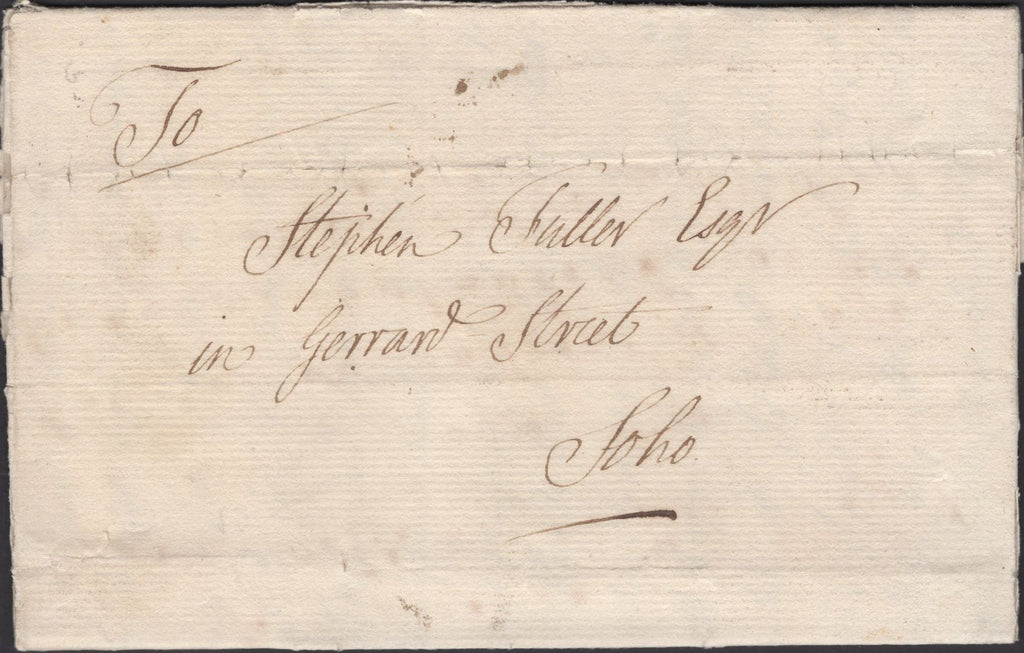 To
Stephen Fuller Esqr
in Gerrard Street
Soho.